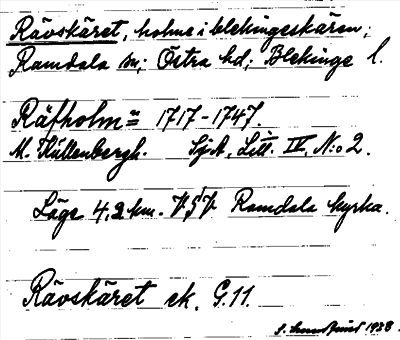 Rävskäret, holme i blekingeskären;
Ramdala sn; Östra hd; Blekinge l.
Räfholm= 1717-1747.
M. Küllenbergh. Sj.A, Litt. IV, N:o 2.
Läge 4,2 km. Ramdala kyrka.
Rävskäret ek. G.11.
1928.